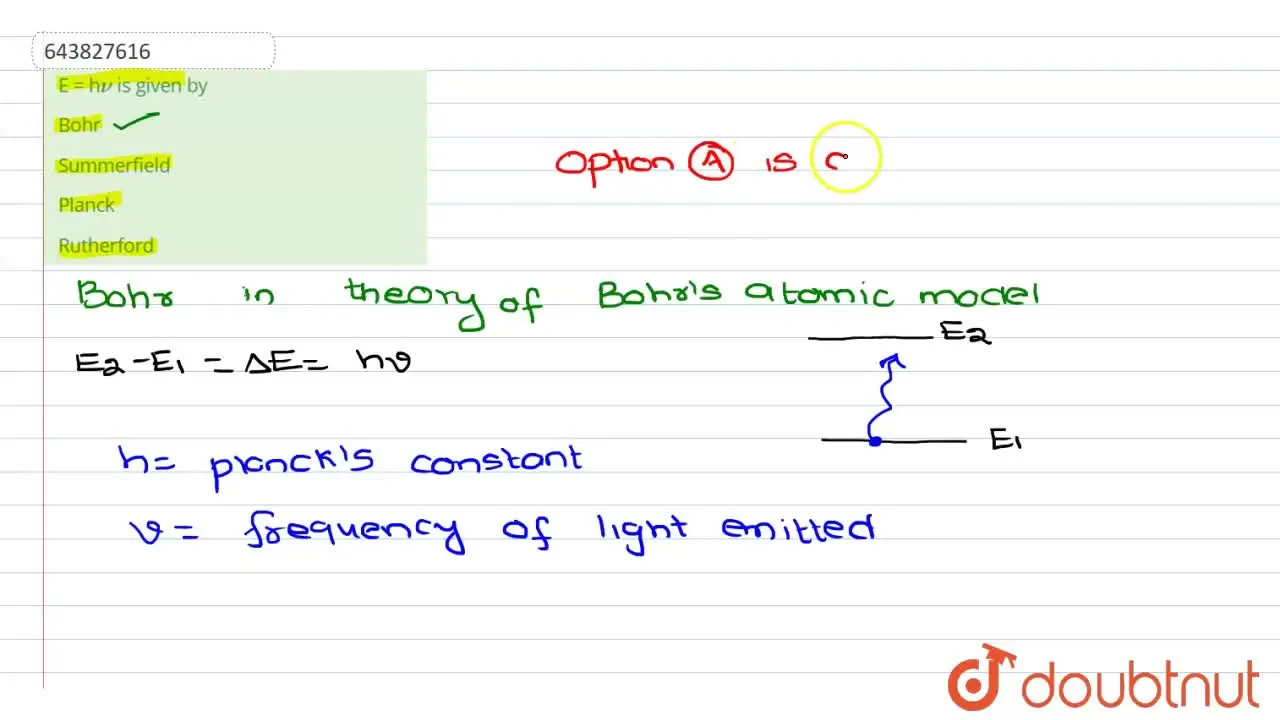 643827616
E = hν is given by
Bohr
Summerfield
Planck
Rutherford
Option A is c
Bohr in theory of Bohr's atomic model
E2 - E1 = ΔE = hν
E2
E1
h = planck's constant
ν = frequency of light emitted
doubtnut